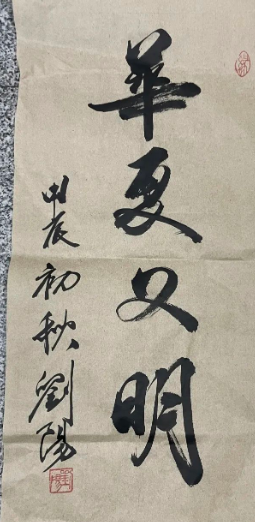 華夏文明
甲辰初秋劉陽